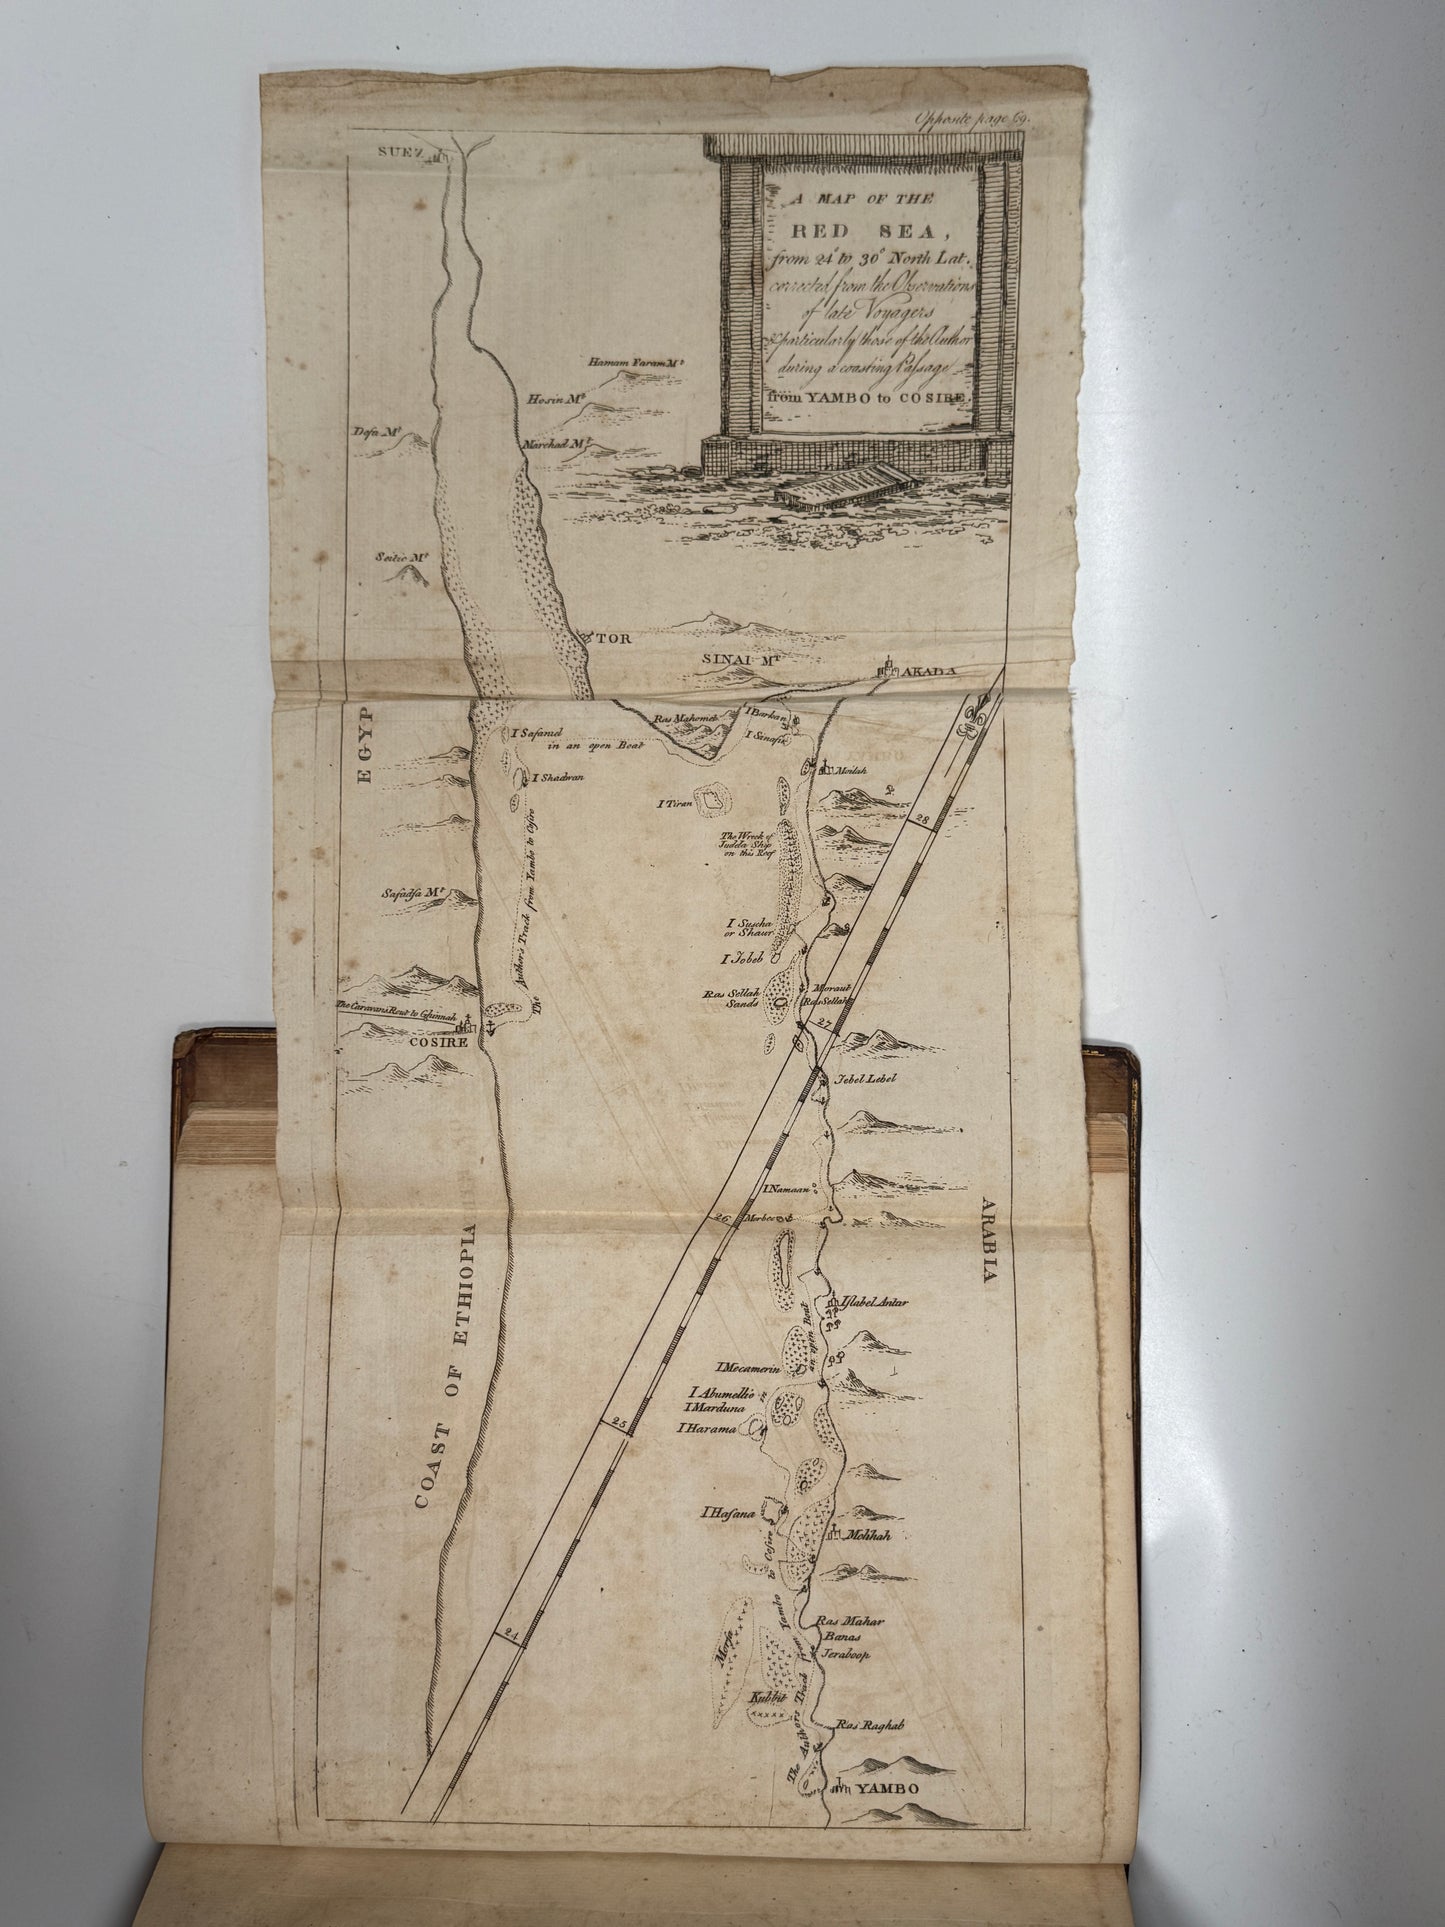 Opposite page 69.
SUEZ
A MAP OF THE
RED SEA,
from 24° to 30° North Lat.
corrected from the Observations
of late Voyagers
& particularly those of the Author
during a coasting Passage
from YAMBO to COSIRE.
Hamam Faram Mt
Hosin Mt
Dofa Mt
Morchad Mt
Seitie Mt
TOR
SINAI Mt
AKABA
EGYP
Ras Mahomet
I Barkan
I Senafir
I Safaniel
in an open Boat
I Shadwan
Moilah
I Tiran
28
The Wreck of
Judda Ship
on this Reef
The Author's Track from Yambo to Cosire
Safadja Mt
I Suscha
or Shaur
I Jobeb
Ras Sellah
Sands
Moraut
Ras Sellah
The Caravans Rout to Ghinnah
COSIRE
27
Jebel Lebel
I Namaan
26
Morbec
ARABIA
COAST OF ETHIOPIA
Islabel Antar
I Mecamerin
I Abumellic
I Marduna
I Harama
25
I Hasana
Mohhah
24
Ras Mahar
Banas
Jeraboop
Morsa
Kubbit
Ras Raghab
The Authors Track from Yambo to Cosire in an open Boat
YAMBO